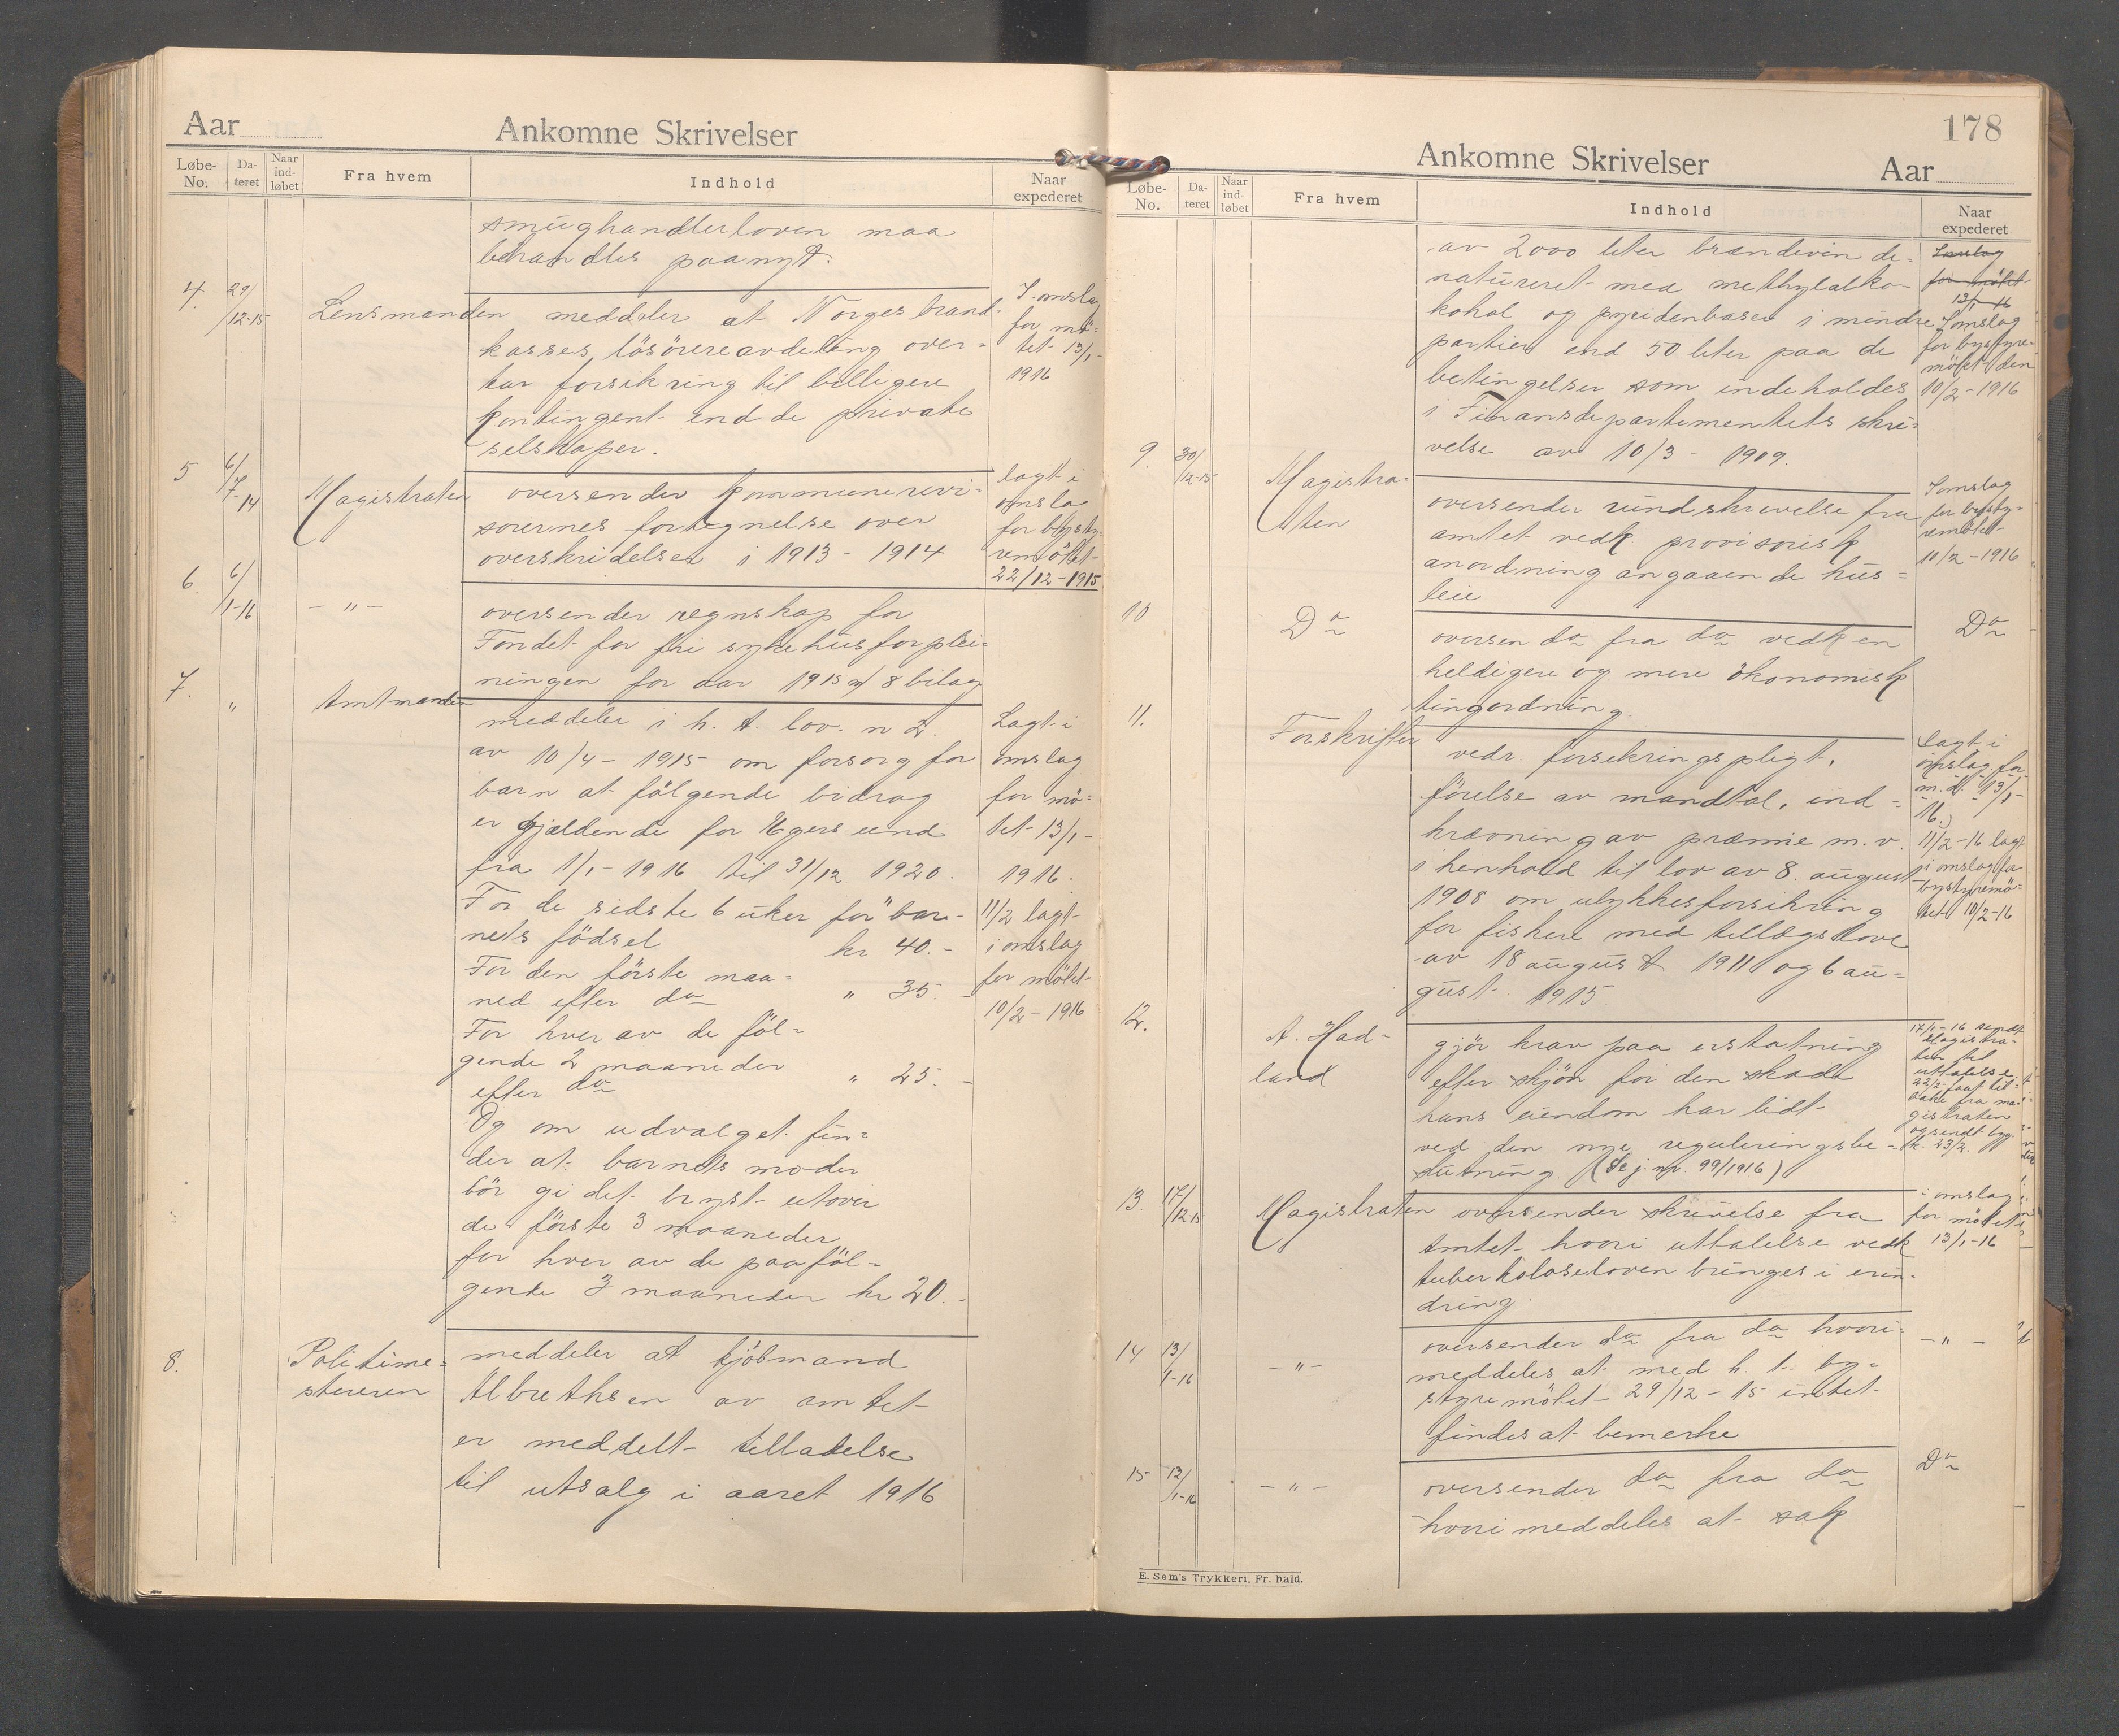 Aar
Ankomne Skrivelser
Løbe-No.
Dateret
Naar indløbet
Fra hvem
Indhold
Naar expederet
smughandlerloven maa
behandles paanyt.
4. 29/12-15 Lensmanden meddeler at Norges brand-
kasses lösöreavdeling over-
tar forsikring til billigere
kontingent end de private
selskaper.
I omslag
for mö-
tet 13/1-
1916
5 6/7-14 Magistraten oversender kommunerevi-
sorernes fortegnelse over
overskridelser i 1913 - 1914
lagt i
omslag
for bysty-
remötet
22/12-1915
6. 6/1-16 - " - oversender regnskap for
Fondet for fri sykehusforplei-
ningen for aar 1915 m/ 8 bilag
7. " Amtmanden
meddeler i h. t. lov. n 2.
av 10/4 - 1915 om forsorg for
barn at fölgende bidrag
er gjældende for Egersund
fra 1/1 - 1916 til 31/12 1920.
For de sidste 6 uker för bar-
nets födsel kr 40.-
For den förste maa-
ned efter do " 35.-
For hver av de föl-
gende 2 maaneder
efter do " 25.-
Og om udvalget fin-
der at barnets moder
bör gi det bryst utover
de förste 3 maaneder
for hver av de paaföl-
gende 3 maaneder kr 20.-
Lagt i
omslag
for mö-
tet 13/1-
1916.
11/2 lagt
i omslag
for mötet
10/2 - 1916
8. Politime-
steren
meddeler at kjöbmand
Albrethsen av amtet
er meddelt tilladelse
til utsalg i aaret 1916
178
Ankomne Skrivelser
Aar
Løbe-No.
Dateret
Naar indløbet
Fra hvem
Indhold
Naar expederet
av 2000 liter brændevin de-
natureret med methylalko-
kohol og pyridenbaser i mindre
partier end 50 liter paa de
betingelser som indeholdes
i Finansdepartementets skri-
velse av 10/3 - 1909.
for mötet
13/1-16
I omslag
for bystyre-
mötet den
10/2 - 1916
9. 30/12-15 Magistra-
ten
oversender rundskrivelse fra
amtet vedk. provisorisk
anordning angaaende hus-
leie
I omslag
for bysty-
remötet
10/2 - 1916
10 Do
oversen do fra do vedk en
heldigere og mere ökonomisk
tingordning.
Do
11. Forskrifter
vedr. forsikringspligt,
förelse av mandtal, ind-
krævning av præmie m. v.
i henhold til lov av 8. august
1908 om ulykkesforsikring
for fiskere med tillægslove
av 18 august 1911 og 6 au-
gust 1915.
Lagt i
omslag for
m. d. 13/1-
16.)
11/2-16 lagt
i omslag for
bystyremö-
tet 10/2-16
12. A. Had-
land
gjör krav paa erstatning
efter skjön for den skade
hans eiendom har lidt
ved den nye reguleringsbe-
slutning. (Se j. nr. 99/1916)
17/1-16 sendt
Magistra-
ten til
uttalelse.
22/2 faat til-
bake fra ma-
gistraten
og sendt byg.
k. 23/2.
13. 17/12-15 Magistraten oversender skrivelse fra
Amtet hvori uttalelse vedk
tuberkuloseloven bringes i erin-
dring.
i omslag
for mötet
13/1-16
14 13/1-16 - " -
oversender do fra do hvori
meddeles at med h. t. by-
styremötet 29/12 - 15 intet
findes at bemerke
- " -
15 13/1-16 - " -
oversender do fra do
hvori meddeles at sak
Do
E. Sem's Trykkeri, Fr.hald.